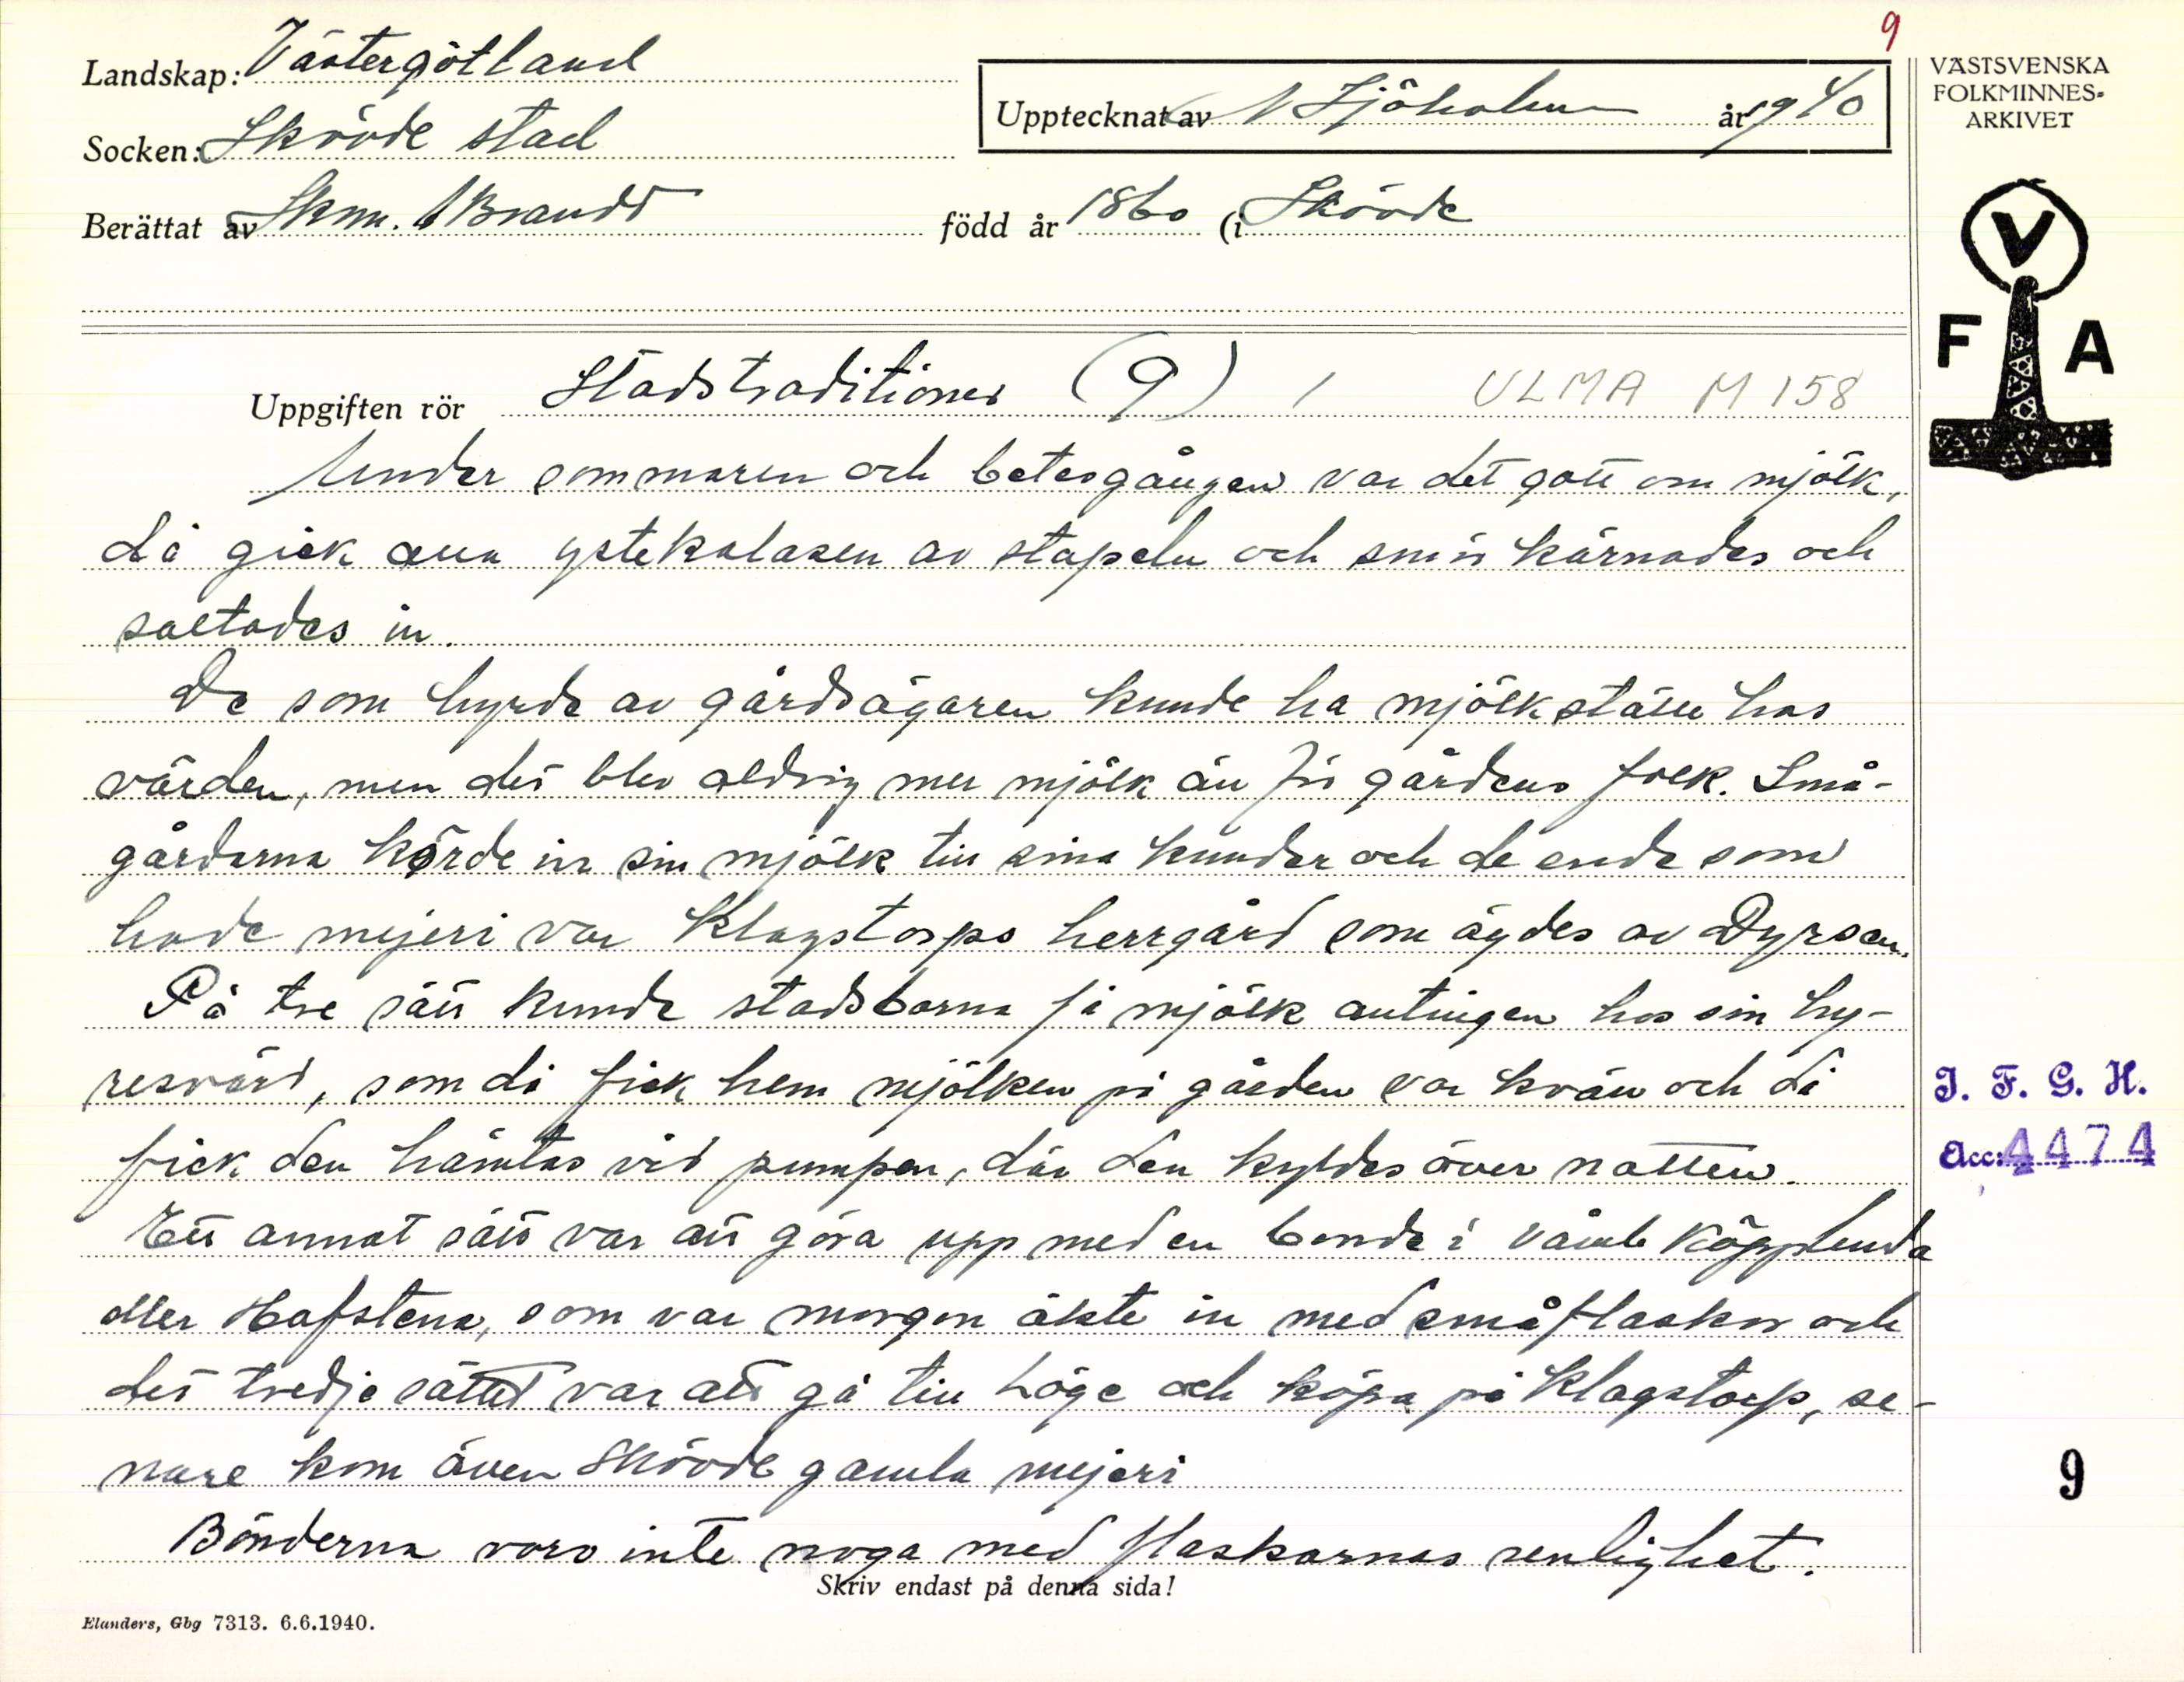 9
Landskap: Västergötland
Socken: Skövde stad
Upptecknat av N Sjöholm år 1940
Berättat av Skm. Brandt född år 1860 (i Skövde
VÄSTSVENSKA
FOLKMINNES-
ARKIVET
V
F A
Uppgiften rör Stadstraditioner (9) 1 ULMA M 158
Under sommaren och betesgången var det gott om mjölk,
då gick alla ystekalasen av stapeln och smör kärnades och
saltades in.
De som hyrde av gårdsägaren kunde ha mjölkställe hos
värden, men det blev aldrig mer mjölk än för gårdens folk. Små-
gårdarna körde in sin mjölk till sina kunder och de enda som
hade mejeri var Klagstorps herrgård som ägdes av Dyrsen.
På tre sätt kunde stadsborna få mjölk antingen hos sin hy-
resvärd, som då fick hem mjölken på gården var kväll och då
fick den hämtas vid pumpen, där den kyldes över natten.
Ett annat sätt var att göra upp med en bonde i Våmb Käpplunda
eller Hafstena, som var morgon åkte in med småflaskor och
det tredje sättet var att gå till Löge och köpa på Klagstorp, se-
nare kom även Skövde gamla mejeri
Bönderna voro inte noga med flaskornas renlighet.
Skriv endast på denna sida!
Elanders, Gbg 7313. 6.6.1940.
I. F. G. H.
Acc: 4474
9